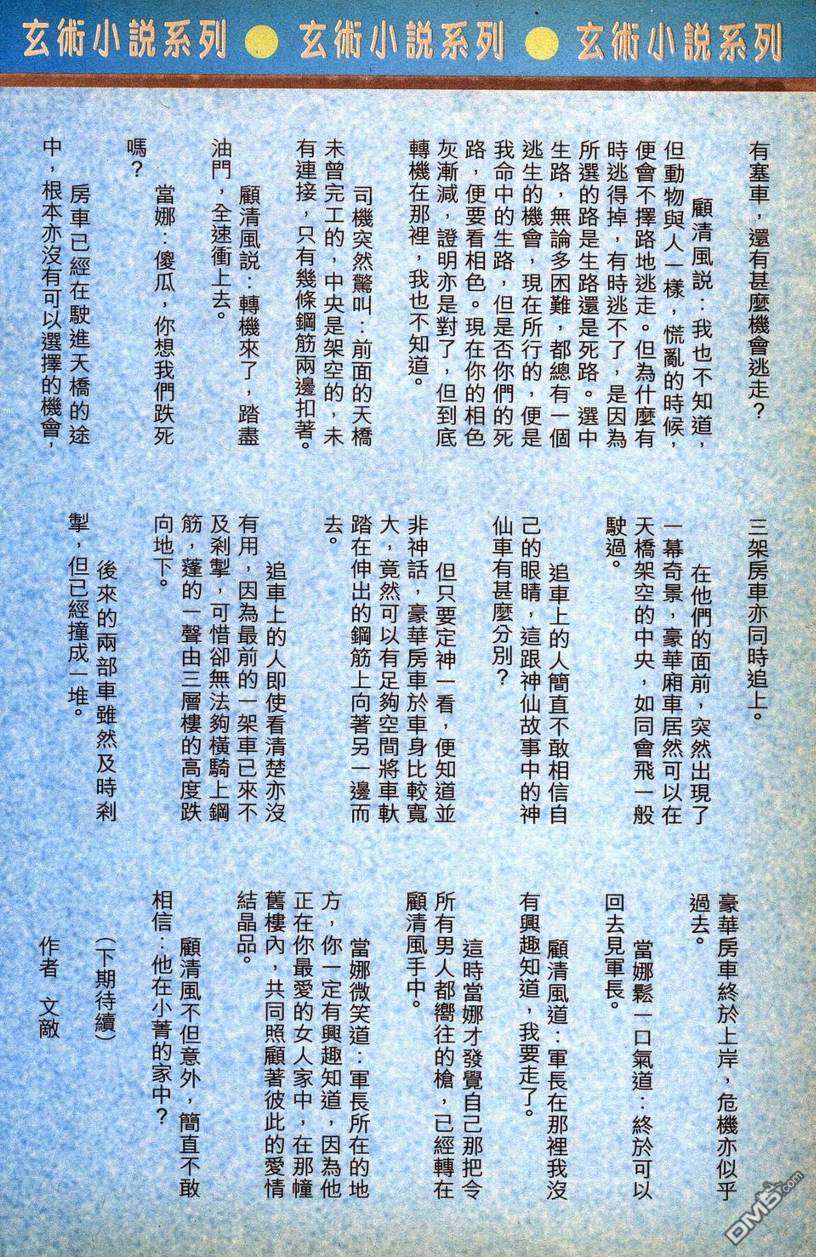 玄術小説系列 ● 玄術小説系列 ● 玄術小説系列
有塞車，還有甚麼機會逃走？
顧清風説：我也不知道，
但動物與人一樣，慌亂的時候，
便會不擇路地逃走。但為什麼有
時逃得掉，有時逃不了，是因為
所選的路是生路還是死路。選中
生路，無論多困難，都總有一個
逃生的機會，現在所行的，便是
我命中的生路，但是否你們的死
路，便要看相色。現在你的相色
灰漸減，證明亦是對了，但到底
轉機在那裡，我也不知道。
司機突然驚叫：前面的天橋
未曾完工的，中央是架空的，未
有連接，只有幾條鋼筋兩邊扣著。
顧清風説：轉機來了，踏盡
油門，全速衝上去。
當娜：傻瓜，你想我們跌死
嗎？
房車已經在駛進天橋的途
中，根本亦沒有可以選擇的機會，
三架房車亦同時追上。
在他們的面前，突然出現了
一幕奇景，豪華廂車居然可以在
天橋架空的中央，如同會飛一般
駛過。
追車上的人簡直不敢相信自
己的眼睛，這跟神仙故事中的神
仙車有甚麼分別？
但只要定神一看，便知道並
非神話，豪華房車於車身比較寬
大，竟然可以有足夠空間將車軚
踏在伸出的鋼筋上向著另一邊而
去。
追車上的人即使看清楚亦沒
有用，因為最前的一架車已來不
及剎掣，可惜卻無法夠橫騎上鋼
筋，蓬的一聲由三層樓的高度跌
向地下。
後來的兩部車雖然及時剎
掣，但已經撞成一堆。
豪華房車終於上岸，危機亦似乎
過去。
當娜鬆一口氣道：終於可以
回去見軍長。
顧清風道：軍長在那裡我沒
有興趣知道，我要走了。
這時當娜才發覺自己那把令
所有男人都嚮往的槍，已經轉在
顧清風手中。
當娜微笑道：軍長所在的地
方，你一定有興趣知道，因為他
正在你最愛的女人家中，在那幢
舊樓內，共同照顧著彼此的愛情
結晶品。
顧清風不但意外，簡直不敢
相信：他在小菁的家中？
（下期待續）
作者 文敵
DM5.com